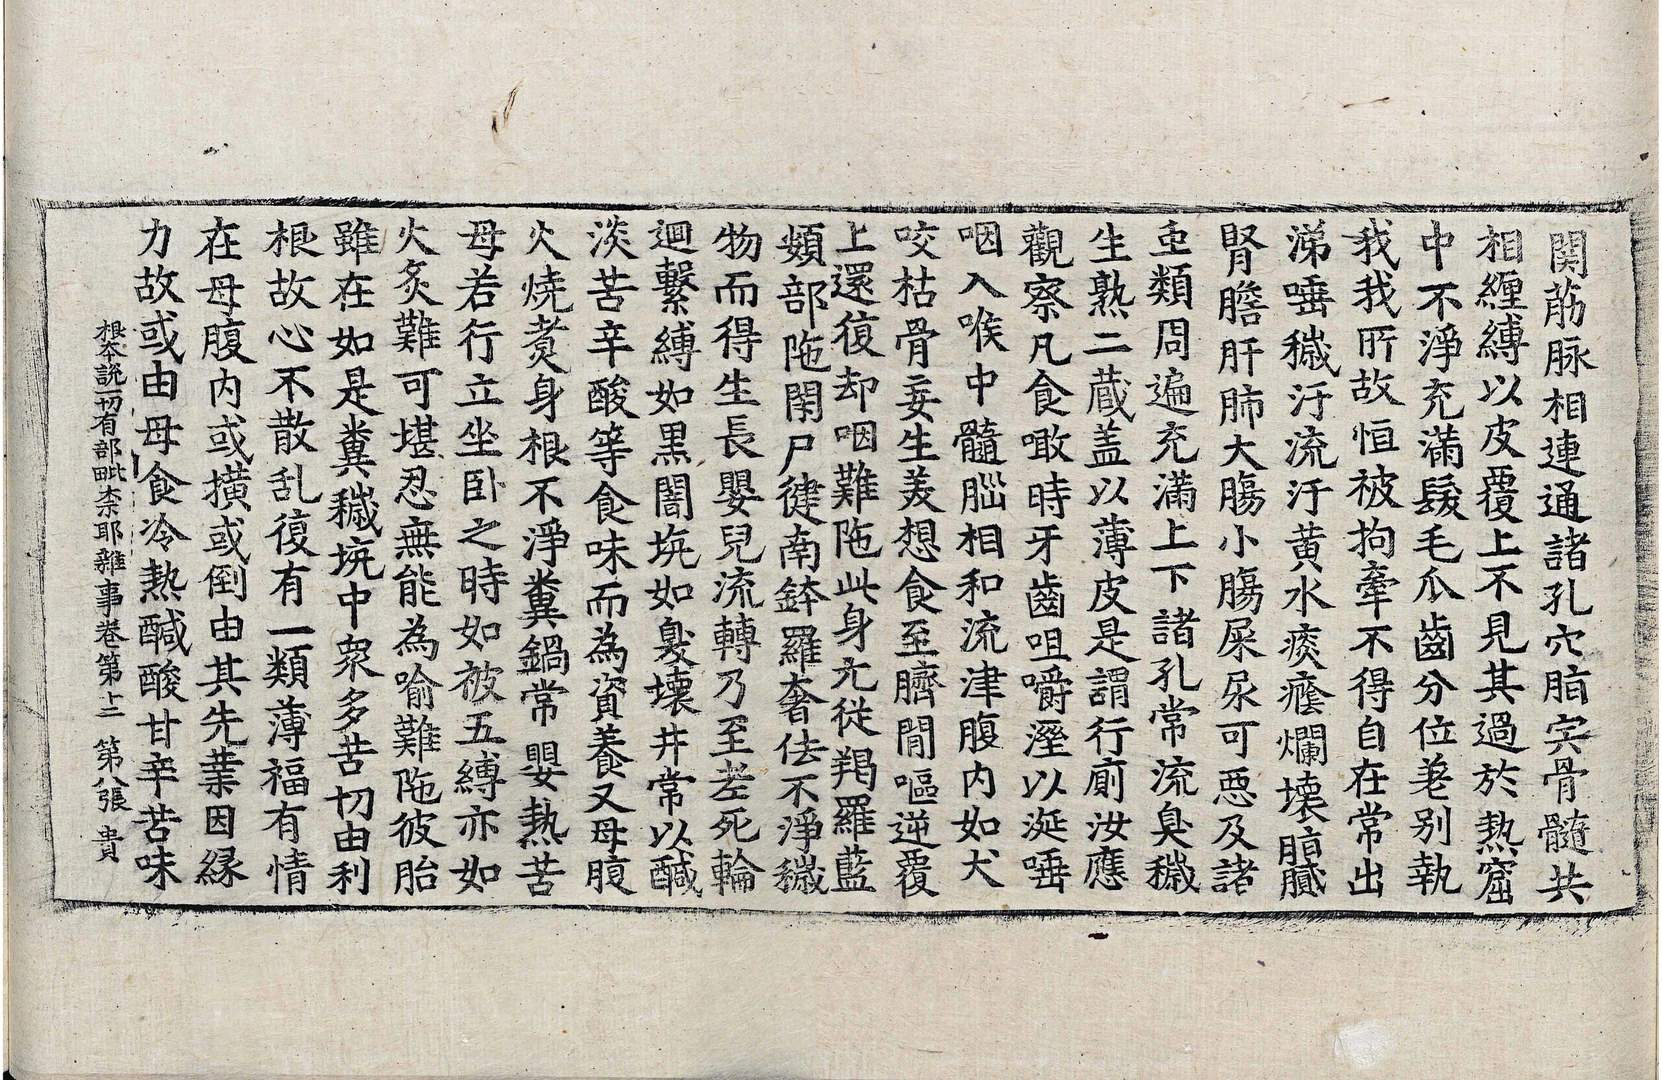 関筋脉相連通諸孔穴脂宍骨髓共
相纏縛以皮覆上不見其過於熱窟
中不淨充滿髮毛爪齒分位差別執
我我所故恒被拘牽不得自在常出
涕唾穢汙流汙黃水痰癊爛壞脂膩
腎膽肝肺大膓小膓屎尿可惡及諸
虫類周遍充滿上下諸孔常流臭穢
生熟二蔵盖以薄皮是謂行廁汝應
觀察凡食噉時牙齒咀嚼溼以涎唾
咽入喉中髓腦相和流津腹内如犬
咬枯骨妄生美想食至臍間嘔逆覆
上還復却咽難陁此身元從羯羅藍
頞部陁閇尸健南鉢羅奢佉不淨穢
物而得生長嬰兒流轉乃至老死輪
迴繫縛如黒闇坑如臭壞井常以醎
淡苦辛酸等食味而為資養又母腹
火燒煑身根不淨糞鍋常嬰熱苦
母若行立坐卧之時如被五縛亦如
火炙難可堪忍無能為喻難陁彼胎
雖在如是糞穢坑中衆多苦切由利
根故心不散乱復有一類薄福有情
在母腹内或撗或倒由其先業因縁
力故或由母食冷熱醎酸甘辛苦味
根本說一切有部毗奈耶雜事卷第十二　第八張　貴